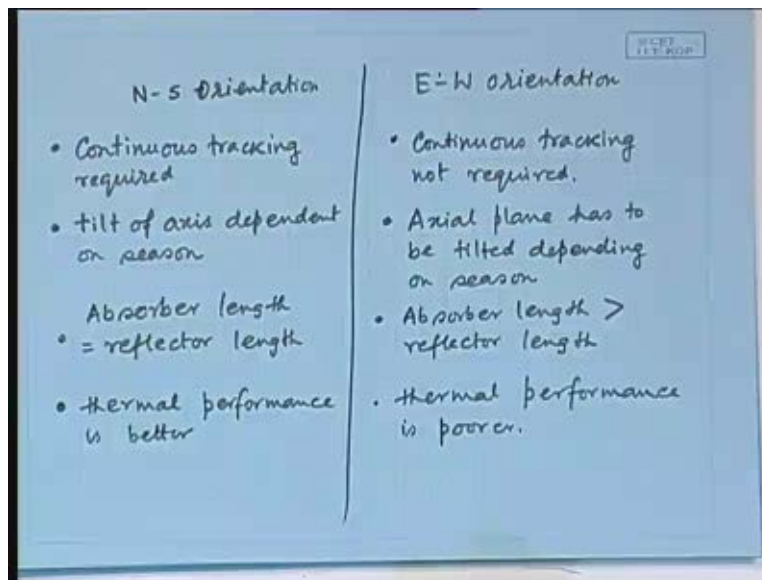 © CET
I.I.T. KGP
N-S Orientation
• Continuous tracking
required
• tilt of axis dependent
on season
Absorber length
• = reflector length
• thermal performance
is better
E-W Orientation
• Continuous tracking
not required.
• Axial plane has to
be tilted depending
on season
• Absorber length >
reflector length
. thermal performance
is poorer.